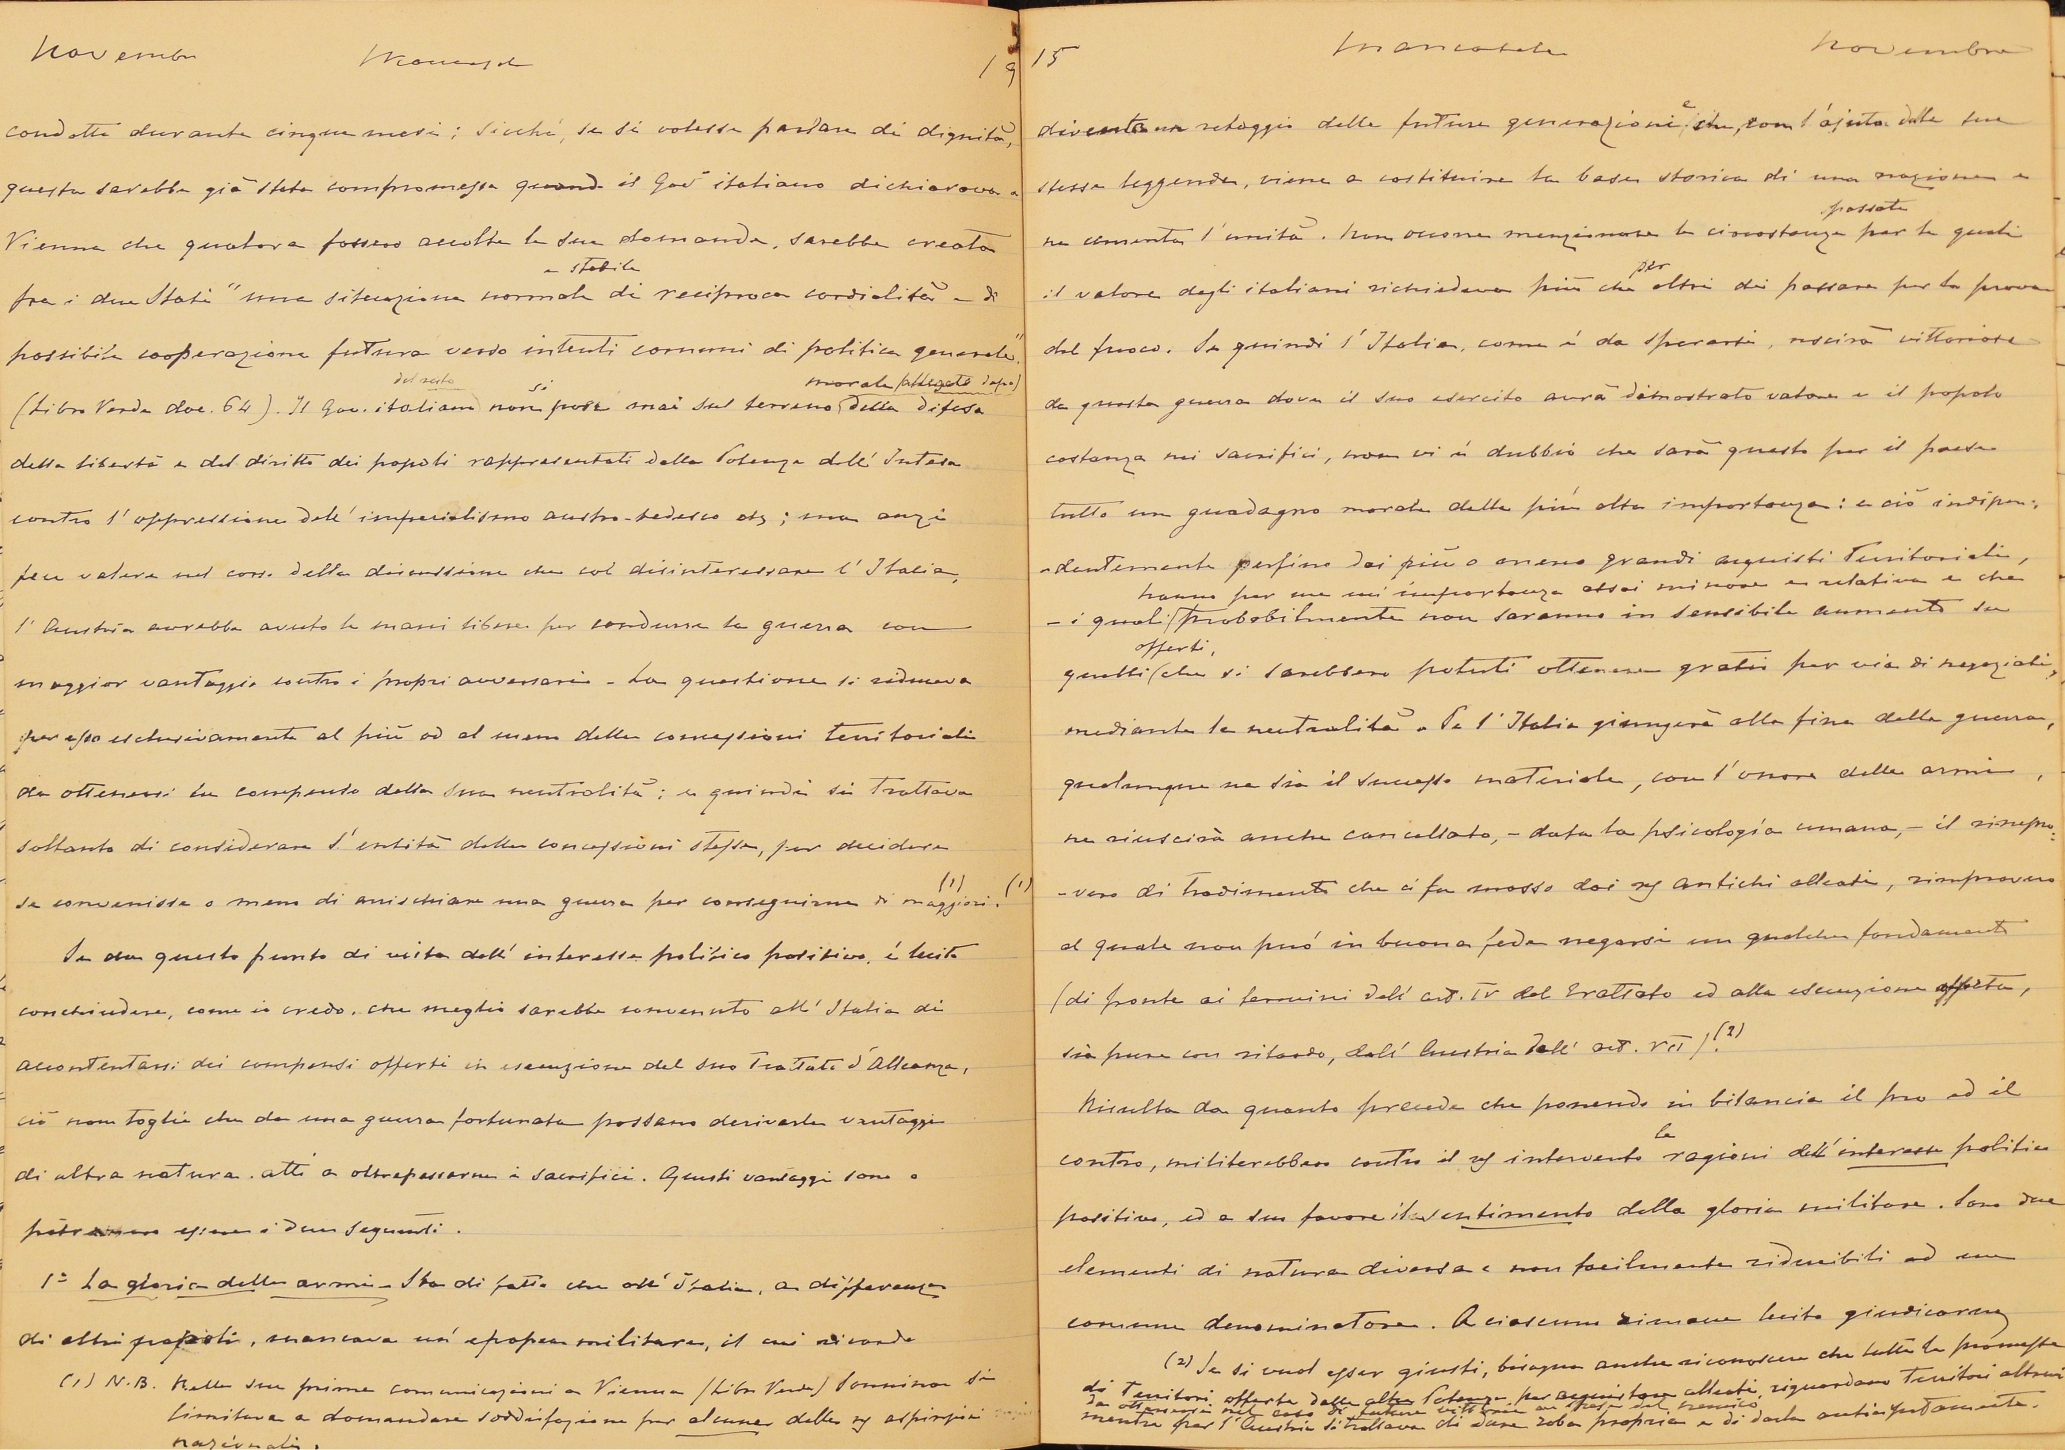 Novembre
19
condotte durante cinque mesi; sicché, se si volesse parlare di dignità,
questa sarebbe già stata compromessa quando il Gov° italiano dichiarava a
Vienna che qualora fossero accolte le sue domande, sarebbe creata
e stabile
fra i due Stati "una situazione normale di reciproca cordialità e di
possibile cooperazione futura verso intenti comuni di politica generale".
del resto si morale
(Libro Verde doc. 64). Il Gov. italiano non pose mai sul terreno della difesa
della libertà e del diritto dei popoli rappresentati dalle Potenze dell' Intesa
contro l'oppressione dell' imperialismo austro-tedesco etc; ma anzi
fece valere nel corso della discussione che col disinteressare l'Italia,
l'Austria avrebbe avuto le mani libere per condurre la guerra con
maggior vantaggio contro i propri avversari - La questione si riduceva
per esso esclusivamente al più od al meno delle concessioni territoriali
da ottenersi in compenso della sua neutralità; e quindi si trattava
soltanto di considerare l'entità delle concessioni stesse, per decidere
se convenisse o meno di arrischiare una guerra per conseguirne di maggiori. (1)
Se da questo punto di vista dell' interesse politico positivo, è lecito
conchiudere, come io credo, che meglio sarebbe convenuto all' Italia di
accontentarsi dei compensi offerti in esecuzione del suo Trattato d'Alleanza,
ciò non toglie che da una guerra fortunata possano derivarle vantaggi
di altra natura atti a oltrepassarne i sacrifici. Questi vantaggi sono o
potranno essere i due seguenti.
1° La gloria delle armi - Sta di fatto che all' Italia, a differenza
di altri popoli, mancava un' epopea militare, il cui ricordo
(1) N.B. Nelle sue prime comunicazioni a Vienna (Libro Verde) Sonnino si
limitava a domandare soddisfazione per alcune delle ns aspirazioni
nazionali.
15
Novembre
diventa un retaggio delle future generazioni e che, con l'ajuto delle sue
stesse leggende, viene a costituire la base storica di una nazione e
passate
ne cementa l'unità. Non occorre menzionare le circostanze per le quali
per
il valore degli italiani richiedeva più che altri di passare per la prova
del fuoco. Se quindi l'Italia, come è da sperarsi, uscirà vittoriosa
da questa guerra dove il suo esercito avrà dimostrato valore e il popolo
costanza nei sacrifici, non vi è dubbio che sarà questo per il paese
tutto un guadagno morale della più alta importanza: e ciò indipen-
-dentemente perfino dai più o meno grandi acquisti territoriali,
hanno per me un' importanza assai minore e relativa e che
- i quali probabilmente non saranno in sensibile aumento su
offerti,
quelli che si sarebbero potuti ottenere gratis per via di negoziati,
mediante la neutralità. Se l'Italia giungerà alla fine della guerra,
qualunque ne sia il successo materiale, con l'onore delle armi,
ne riuscirà anche cancellato, - data la psicologia umana, - il rimpro-
-vero di tradimento che ci fu mosso dai ns antichi alleati, rimprovero
al quale non può in buona fede negarsi un qualche fondamento
(di fronte ai termini dell' art. IV del Trattato ed alla esecuzione offerta,
sia pure con ritardo, dall' Austria dell' art. VII). (2)
Risulta da quanto precede che ponendo in bilancia il pro ed il
le
contro, militerebbero contro il ns intervento ragioni dell' interesse politico
positivo, ed a suo favore il sentimento della gloria militare. Sono due
elementi di natura diversa e non facilmente riducibili ad un
comune denominatore. A ciascuno rimane lecito giudicarne
(2) Se si vuol esser giusti, bisogna anche riconoscere che tutte le promesse
di Territori offerte dalle altre Potenze per acquistare alleati, riguardano Territori altrui
da ottenersi nel caso di future vittorie a spese del nemico,
mentre per l'Austria si trattava di dare roba propria e di darla anticipatamente.